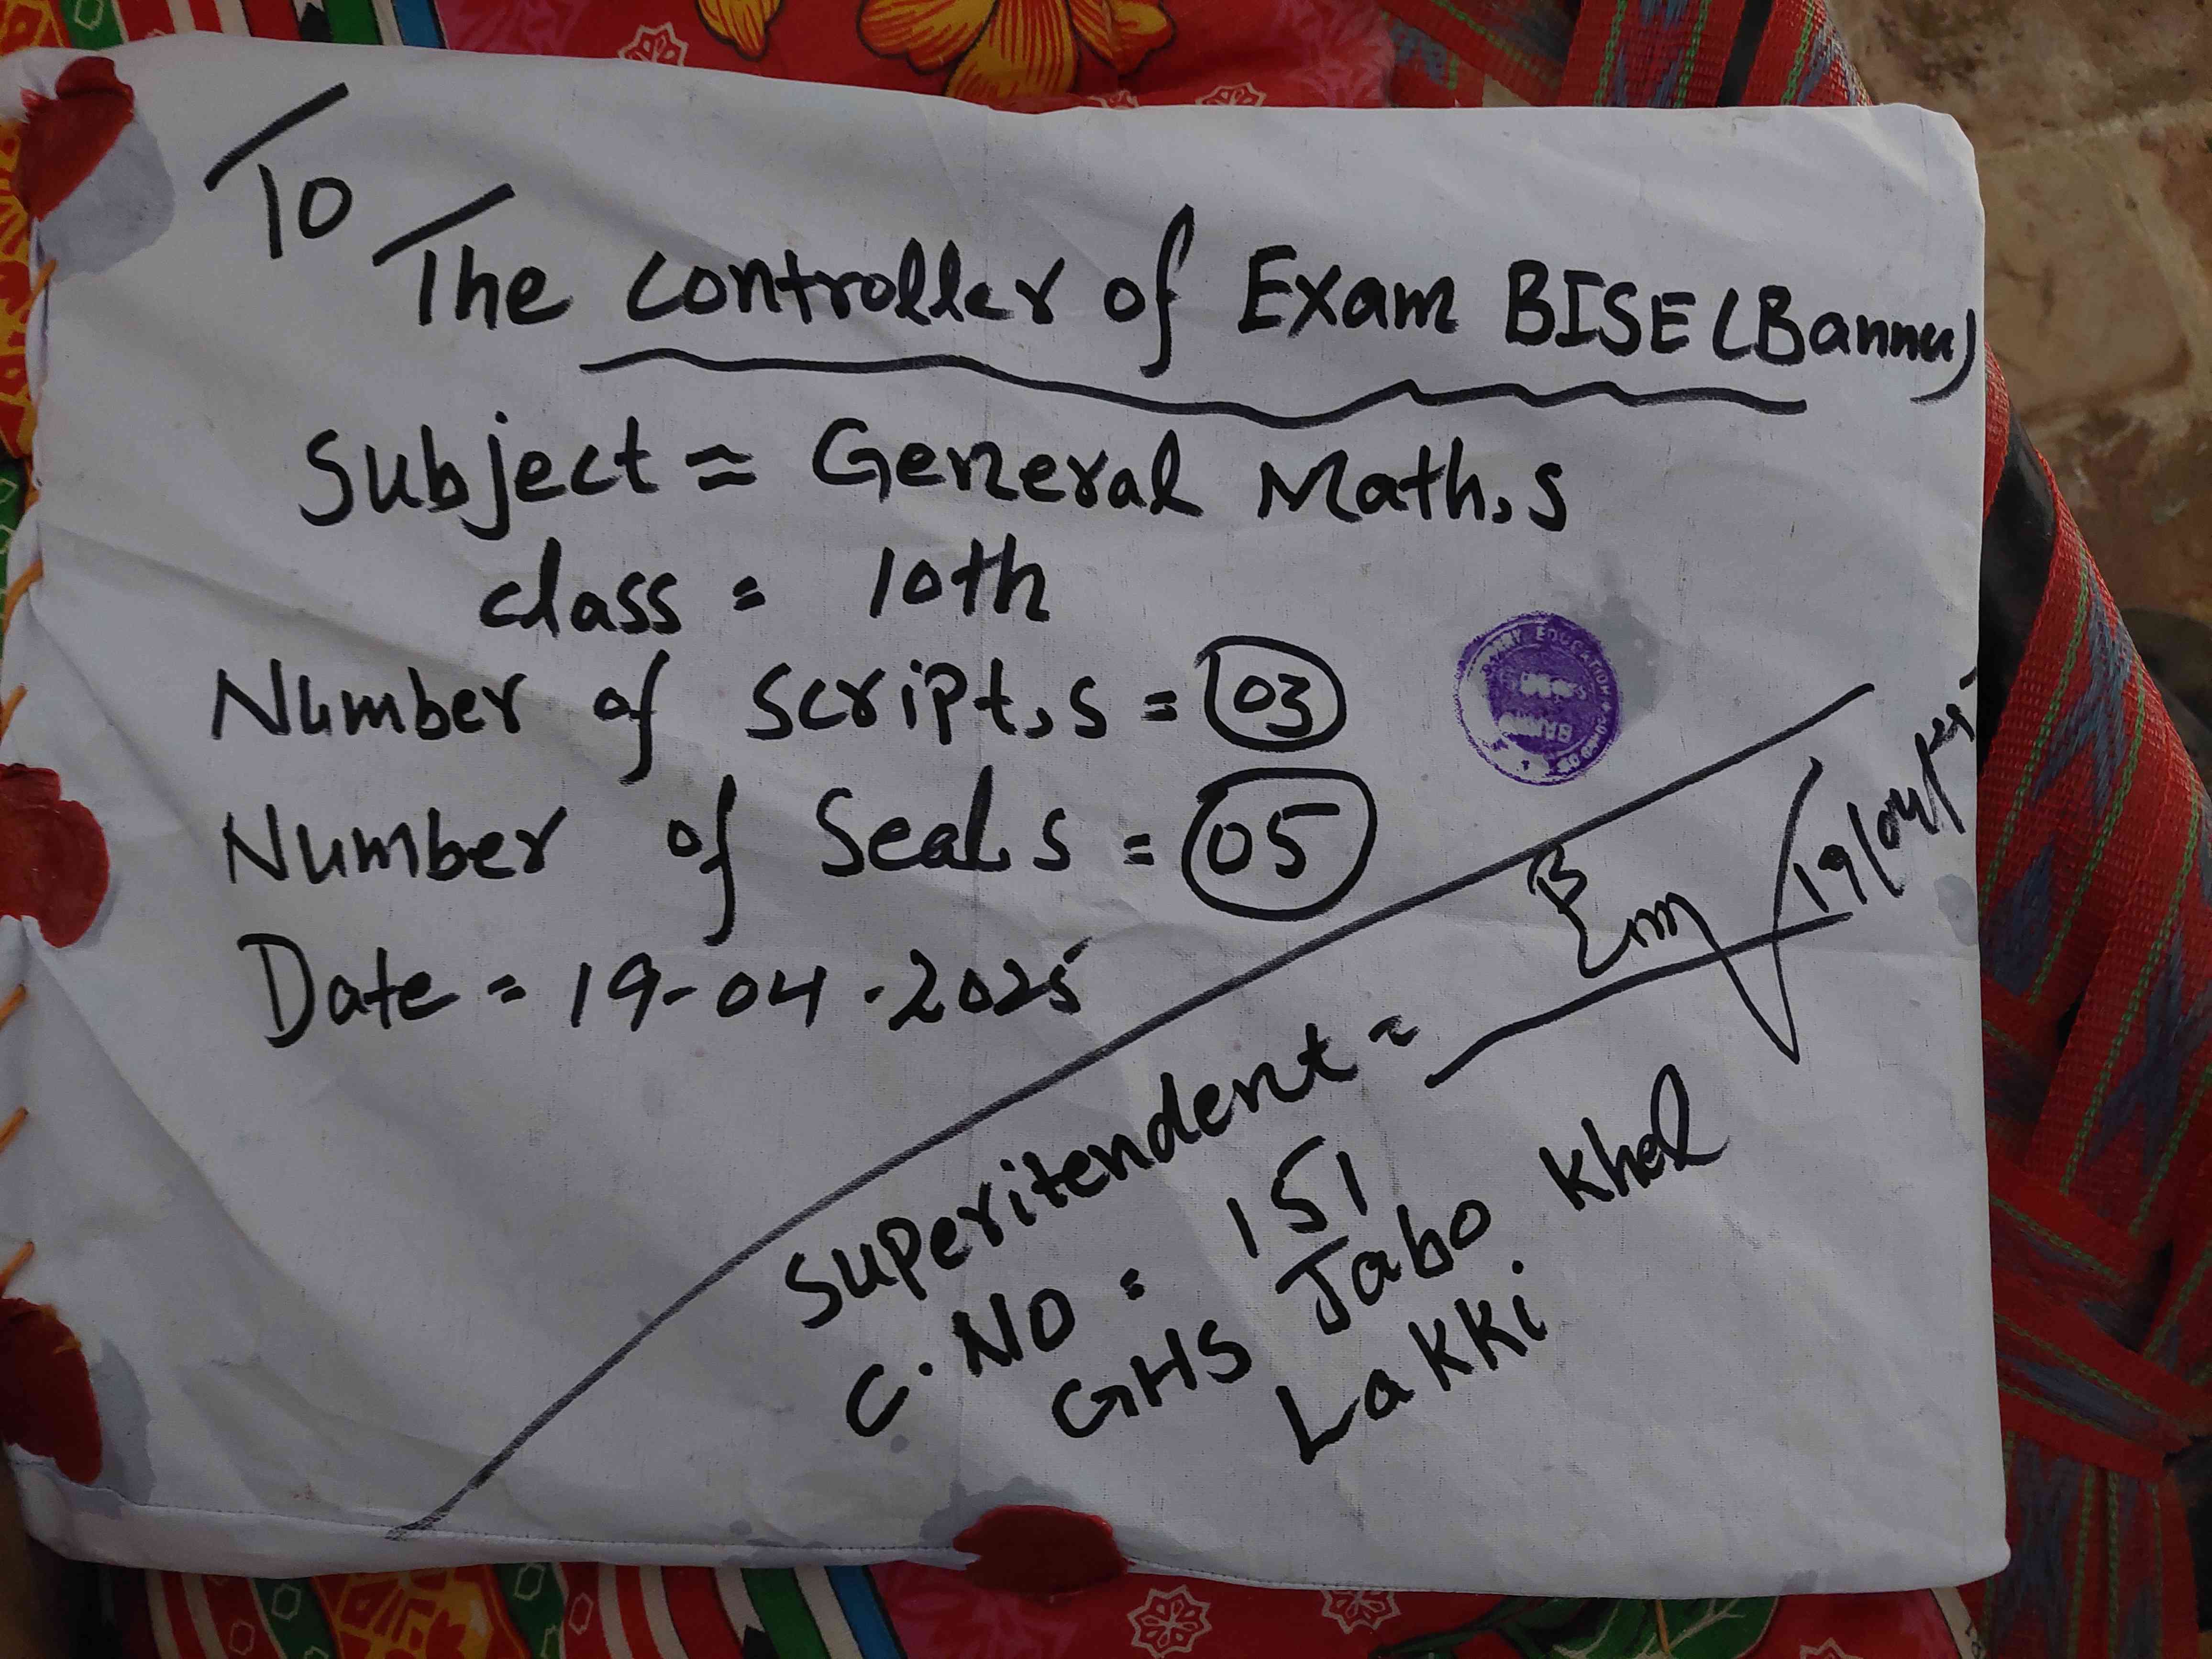 To
The Controller of Exam BISE (Bannu)
Subject = General Math,s
class = 10th
Number of script,s = 03
Number of Seal,s = 05
Date = 19-04-2025
EDUCATION
BANNU
19/04/
Superitendent =
C.No = 151
GHS Jabo Khel
Lakki